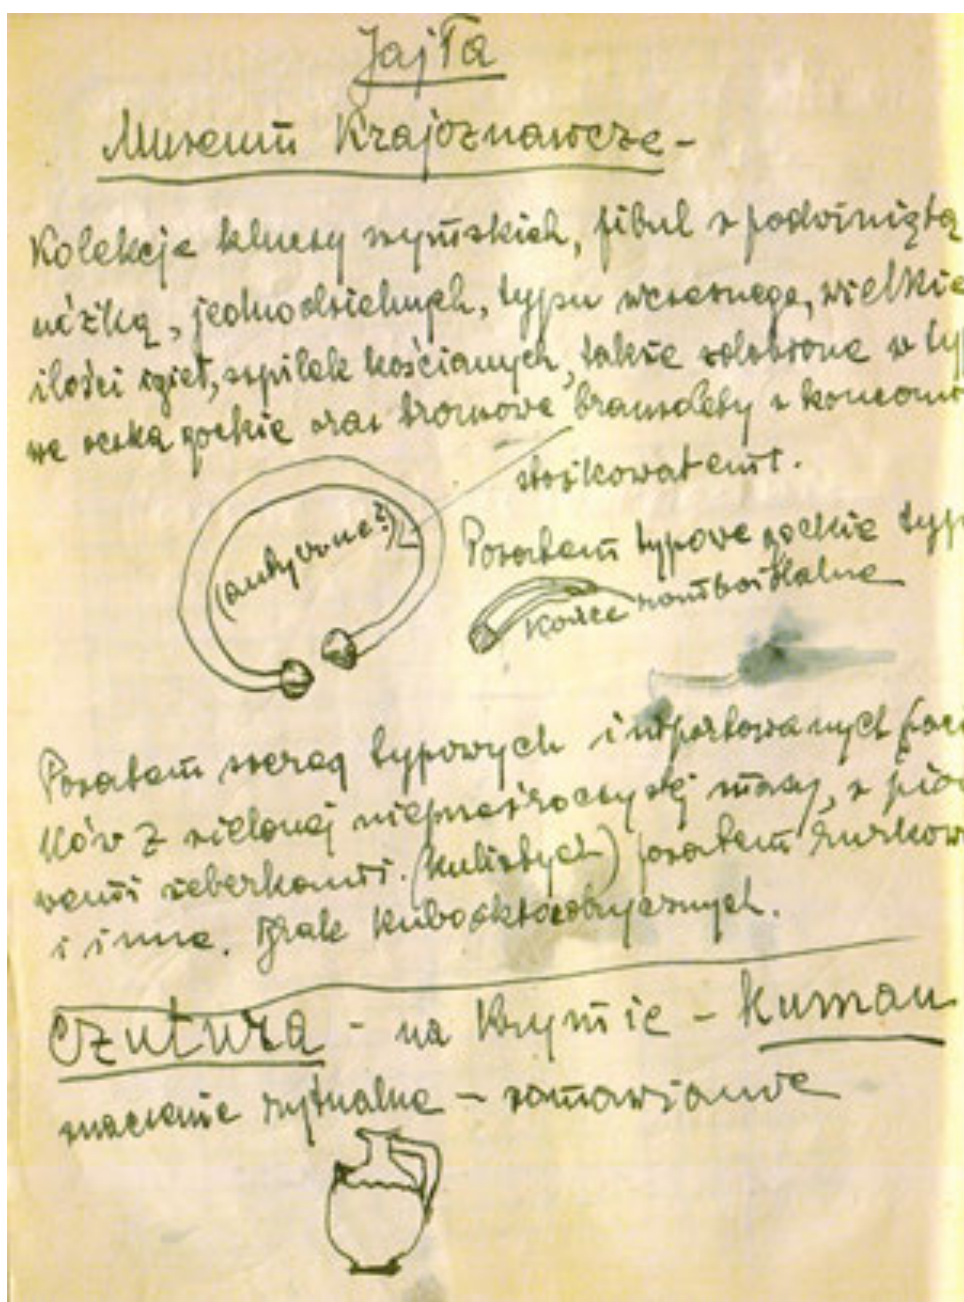 Jajła
Muzeum Krajoznawcze -
Kolekcje kluczy rzymskich, fibul z podwiniętą
nóżką, jednodzielnych, typu wczesnego, wielkie
ilości igieł, szpilek kościanych, także zdobione
gockie oraz bronzowe bransolety z koncami
stożkowatemi.
(antyczne?)
Pozatem typowe gockie
końce romboidalne
Pozatem szereg typowych importowanych
ków z zielonej nieprzeźroczystej masy, z
żeberkami. (kulistych) pozatem
i inne. Brak kubooktoedrycznych.
Czutura - na Krymie - Kuman
znaczenie rytualne - zamawianie